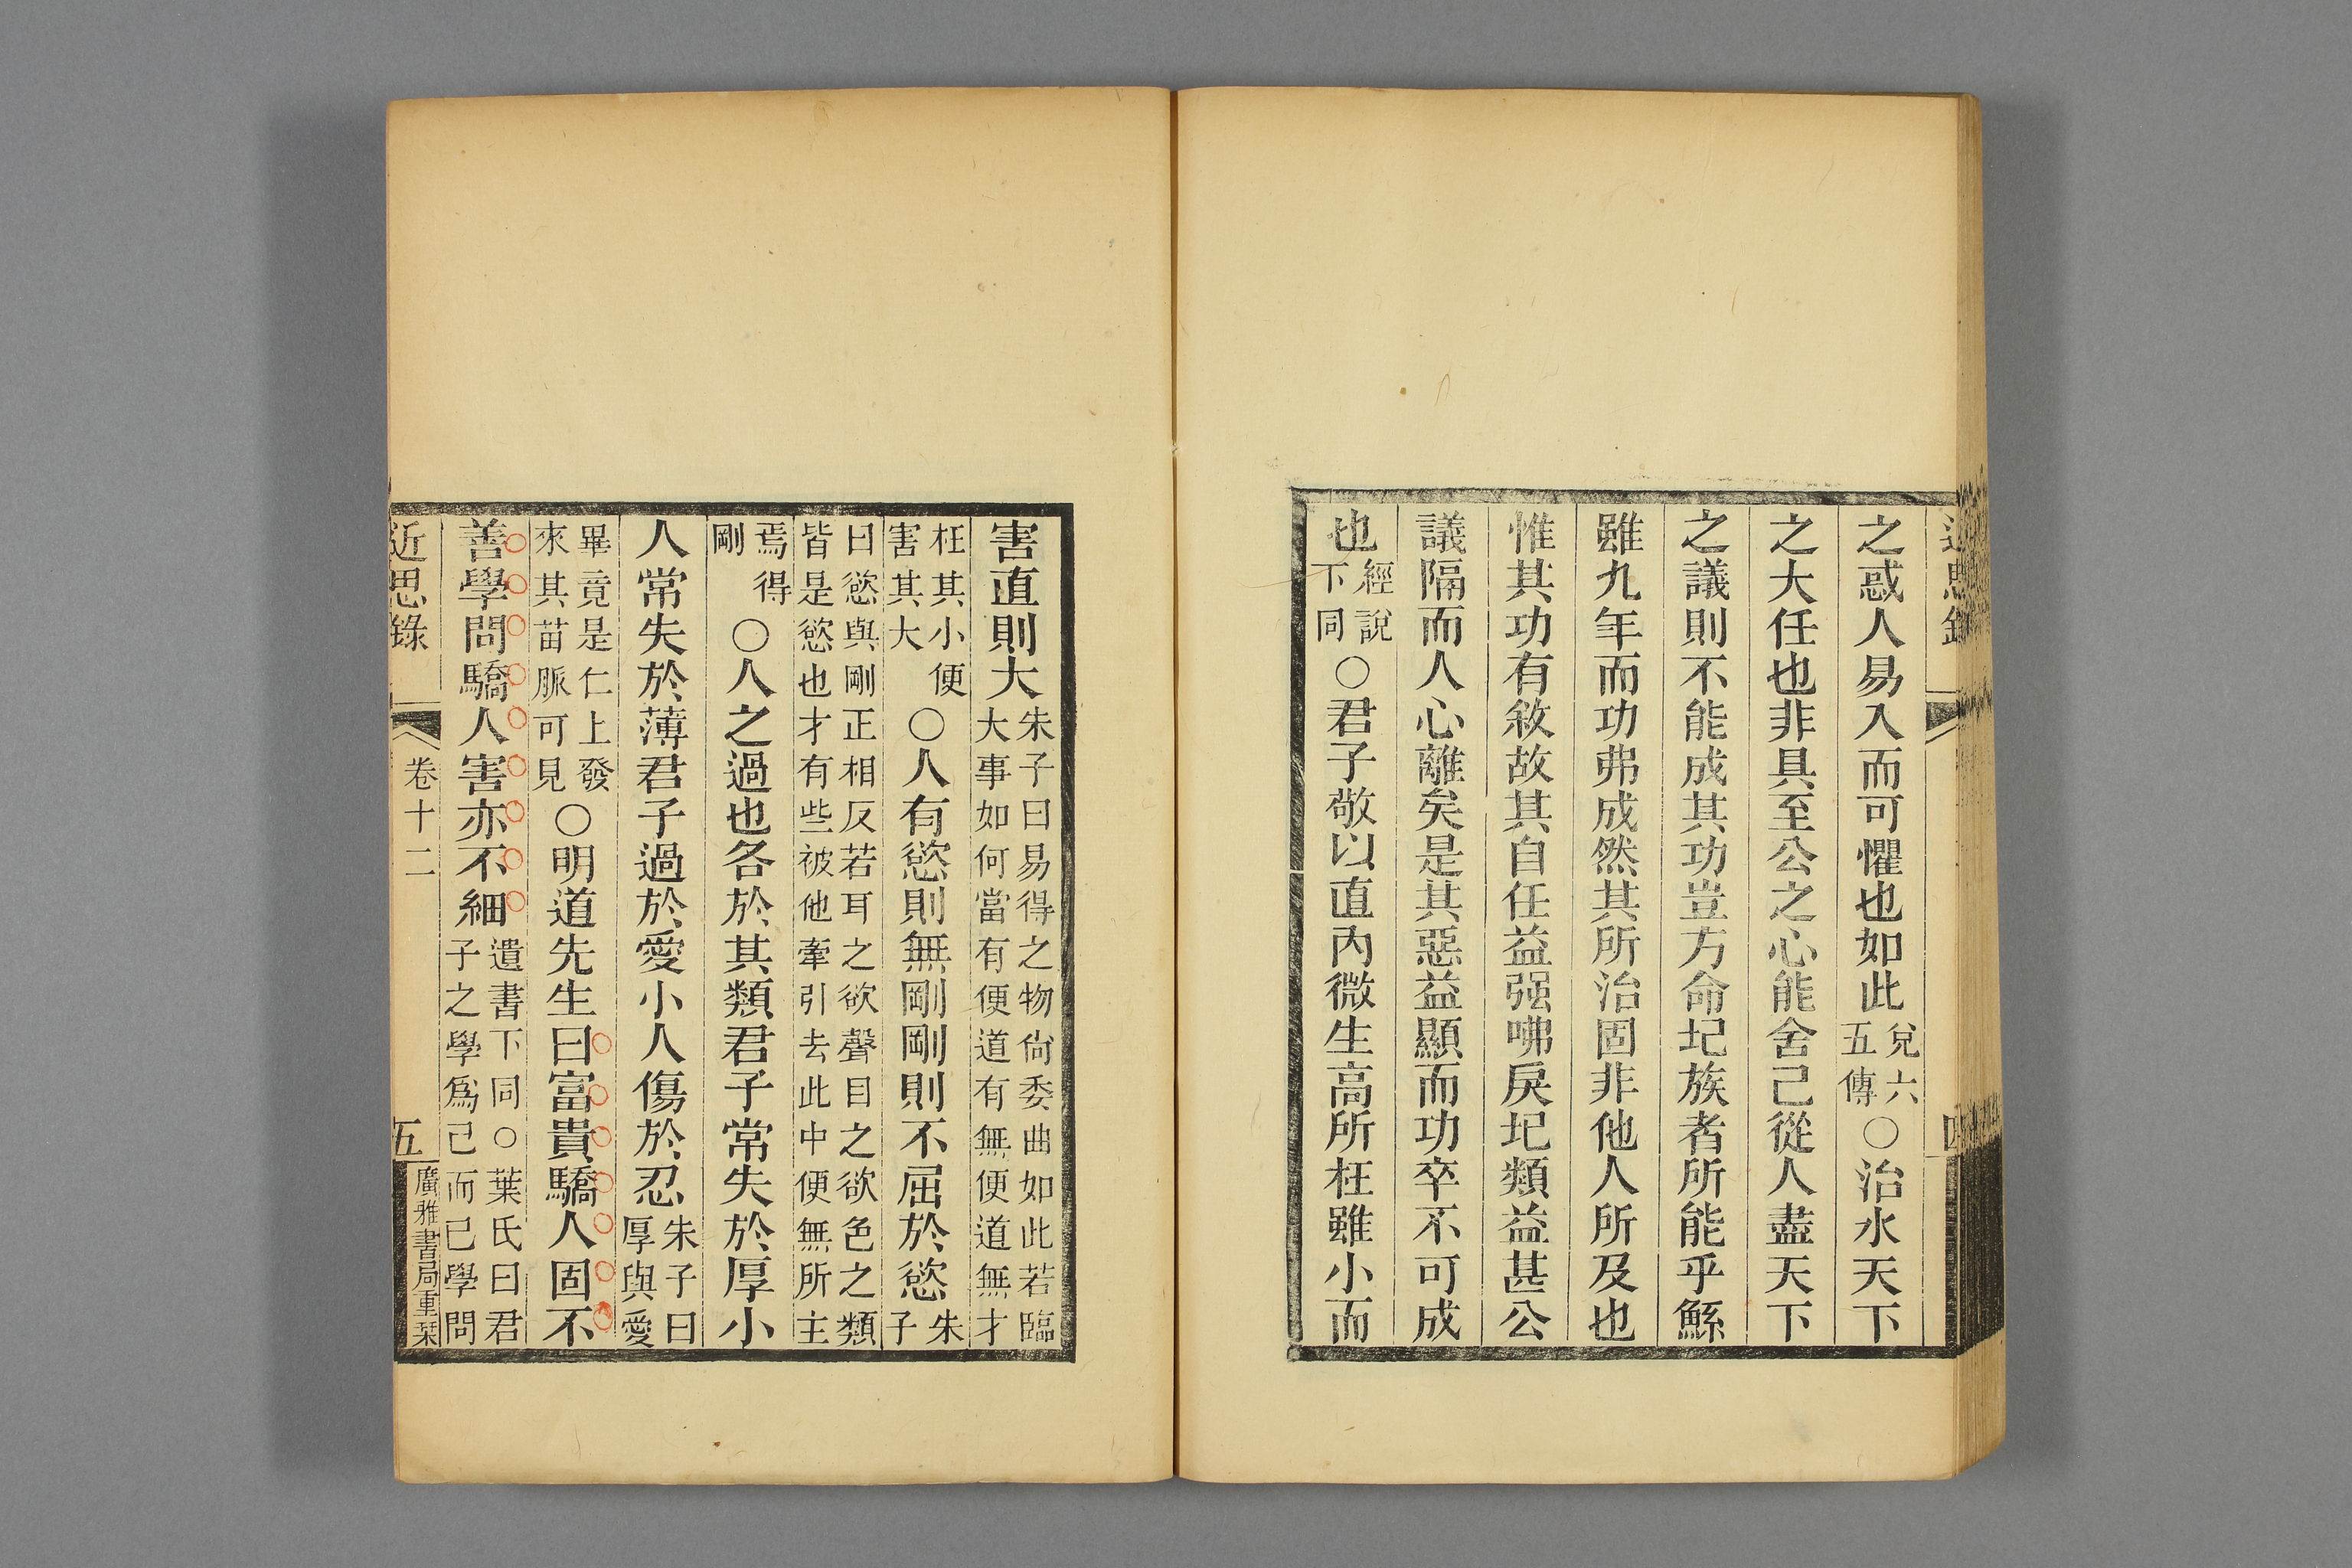 之惑人易入而可懼也如此兌六五傳○治水天下
之大任也非具至公之心能舍己從人盡天下
之議則不能成其功豈方命圮族者所能乎鯀
雖九年而功弗成然其所治固非他人所及也
惟其功有敘故其自任益强咈戾圮類益甚公
議隔而人心離矣是其惡益顯而功卒不可成
也經說下同○君子敬以直內微生高所枉雖小而
害直則大朱子曰易得之物尙委曲如此若臨大事如何當有便道有無便道無才
枉其小便害其大○人有慾則無剛剛則不屈於慾朱子
曰慾與剛正相反若耳之欲聲目之欲色之類皆是慾也才有些被他牽引去此中便無所主
焉得剛○人之過也各於其類君子常失於厚小
人常失於薄君子過於愛小人傷於忍朱子曰厚與愛
畢竟是仁上發來其苗脈可見○明道先生曰富貴驕人固不
善學問驕人害亦不細遺書下同○葉氏曰君子之學爲己而已學問
近思錄 卷十二 五 廣雅書局重栞